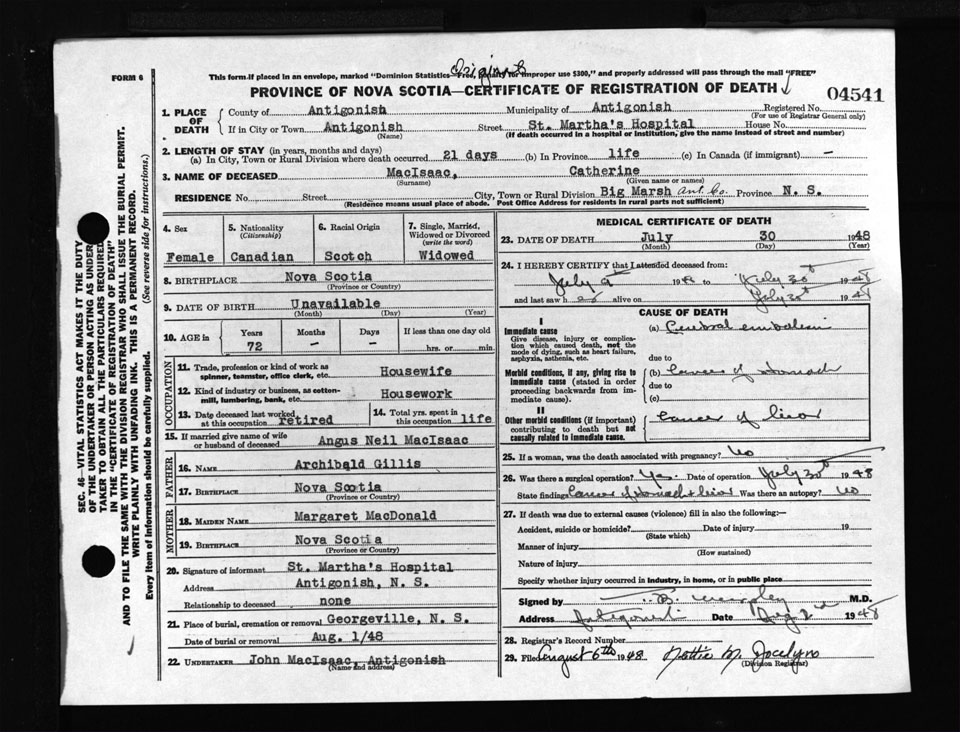 Original
FORM 6
This form if placed in an envelope, marked "Dominion Statistics—Free, penalty for improper use $300," and properly addressed will pass through the mail "FREE"
PROVINCE OF NOVA SCOTIA—CERTIFICATE OF REGISTRATION OF DEATH
04541
1. PLACE OF DEATH
County of Antigonish Municipality of Antigonish Registered No.
(For use of Registrar General only)
If in City or Town Antigonish Street St. Martha's Hospital House No.
(Name) (If death occurred in a hospital or institution, give the name instead of street and number)
2. LENGTH OF STAY (in years, months and days)
(a) In City, Town or Rural Division where death occurred 21 days (b) In Province life (c) In Canada (if immigrant) —
3. NAME OF DECEASED MacIsaac, Catherine
(Surname) (Given name or names)
RESIDENCE No. Street City, Town or Rural Division Big Marsh Ant. Co. Province N. S.
(Residence means usual place of abode. Post Office Address for residents in rural parts not sufficient)
4. Sex
Female
5. Nationality
(Citizenship)
Canadian
6. Racial Origin
Scotch
7. Single, Married, Widowed or Divorced
(write the word)
Widowed
8. BIRTHPLACE Nova Scotia
(Province or Country)
9. DATE OF BIRTH Unavailable
(Month) (Day) (Year)
10. AGE in
Years Months Days If less than one day old
72 — — hrs. or min.
OCCUPATION
11. Trade, profession or kind of work as spinner, teamster, office clerk, etc. Housewife
12. Kind of industry or business, as cotton-mill, lumbering, bank, etc. Housework
13. Date deceased last worked at this occupation retired
14. Total yrs. spent in this occupation life
15. If married give name of wife or husband of deceased Angus Neil MacIsaac
FATHER
16. NAME Archibald Gillis
17. BIRTHPLACE Nova Scotia
(Province or Country)
MOTHER
18. MAIDEN NAME Margaret MacDonald
19. BIRTHPLACE Nova Scotia
(Province or Country)
20. Signature of informant St. Martha's Hospital
Address Antigonish, N. S.
Relationship to deceased none
21. Place of burial, cremation or removal Georgeville, N. S.
Date of burial or removal Aug. 1/48
22. UNDERTAKER John MacIsaac, Antigonish
(Name and address)
MEDICAL CERTIFICATE OF DEATH
23. DATE OF DEATH July 30 1948
(Month) (Day) (Year)
24. I HEREBY CERTIFY that I attended deceased from:
July 9th 1948 to July 30th 1948
and last saw her alive on July 30th 1948
CAUSE OF DEATH
I
Immediate cause
Give disease, injury or complication which caused death, not the mode of dying, such as heart failure, asphyxia, asthenia, etc.
(a) Cerebral embolism
due to
Morbid conditions, if any, giving rise to immediate cause (stated in order proceeding backwards from immediate cause).
(b) Cancer of stomach
due to
(c)
II
Other morbid conditions (if important) contributing to death but not causally related to immediate cause.
Cancer of liver
25. If a woman, was the death associated with pregnancy? No
26. Was there a surgical operation? Yes. Date of operation July 30th 1948
State findings Cancer of stomach + liver Was there an autopsy? No
27. If death was due to external causes (violence) fill in also the following:—
Accident, suicide or homicide? Date of injury 19
(State which)
Manner of injury
(How sustained)
Nature of injury
Specify whether injury occurred in industry, in home, or in public place
Signed by M.D.
Address Antigonish Date Aug 2nd 1948
28. Registrar's Record Number
29. Filed August 6th 1948 Nettie M. Jocelyn
(Division Registrar)
SEC. 46—VITAL STATISTICS ACT MAKES IT THE DUTY
OF THE UNDERTAKER OR PERSON ACTING AS UNDERTAKER TO OBTAIN ALL THE PARTICULARS REQUIRED
IN THE "CERTIFICATE OF REGISTRATION OF DEATH"
AND TO FILE THE SAME WITH THE DIVISION REGISTRAR WHO SHALL ISSUE THE BURIAL PERMIT.
WRITE PLAINLY WITH UNFADING INK. THIS IS A PERMANENT RECORD.
Every item of information should be carefully supplied. (See reverse side for instructions.)